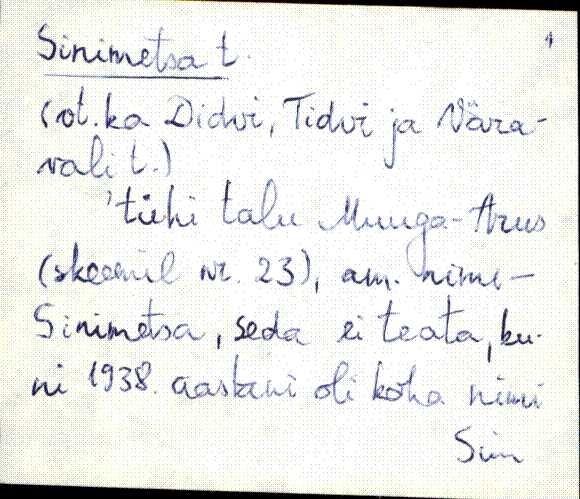 Sinimetsa t. 1
(vt. ka Didvi, Tidvi ja Vära-
vali t.)
'tühi talu Muuga-Arus
(skeemil nr. 23), am. nimi-
Sinimetsa, seda ei teata, ku-
ni 1938. aastani oli koha nimi
Sini